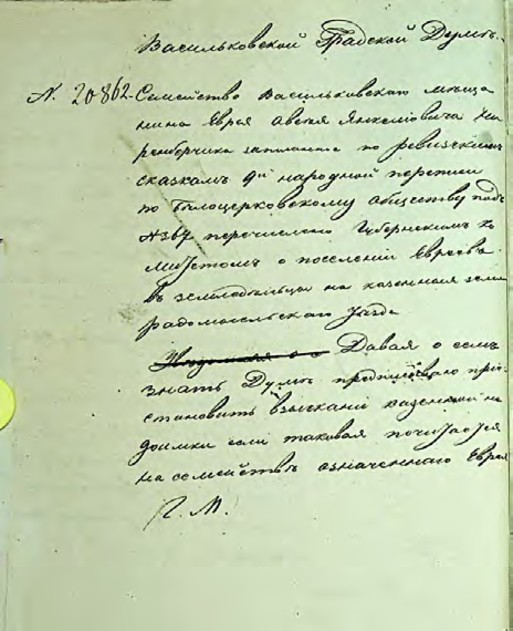 Васильковской Градской Думѣ.
N. 20862. Семейство Васильковскаго мѣща
нина Еврея Янкеловича
записанное по ревизскимъ
сказкамъ 9й народной переписи
по Бѣлоцерковскому обществу подъ
N367 перечислено Губернскимъ Ко
митетомъ о поселеніи Евреевъ
въ земледѣльцы на казенныя земли
радомысльскаго уѣзда
Давая о семъ
знать Думѣ предписываю прі
становить взысканіи казенной не
доимки если таковая почитается
на семействѣ означеннаго Еврея
Г. М.